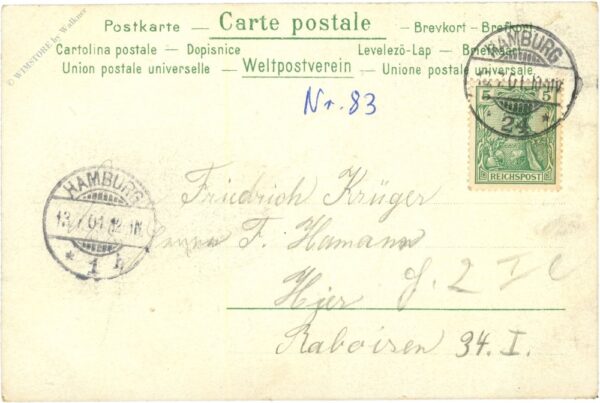 © WIMSTORE by Walkner
Postkarte — Carte postale — Brevkort – Brefkort
Cartolina postale – Dopisnice Levelező-Lap – Briefkaart
Union postale universelle — Weltpostverein — Unione postale universale
Nr. 83
HAMBURG
24
5 5
REICHSPOST
HAMBURG
13.7.01.12-1N
* 1 h
Friedrich Krüger
F. Hamann
Hier
Raboisen 34. I.